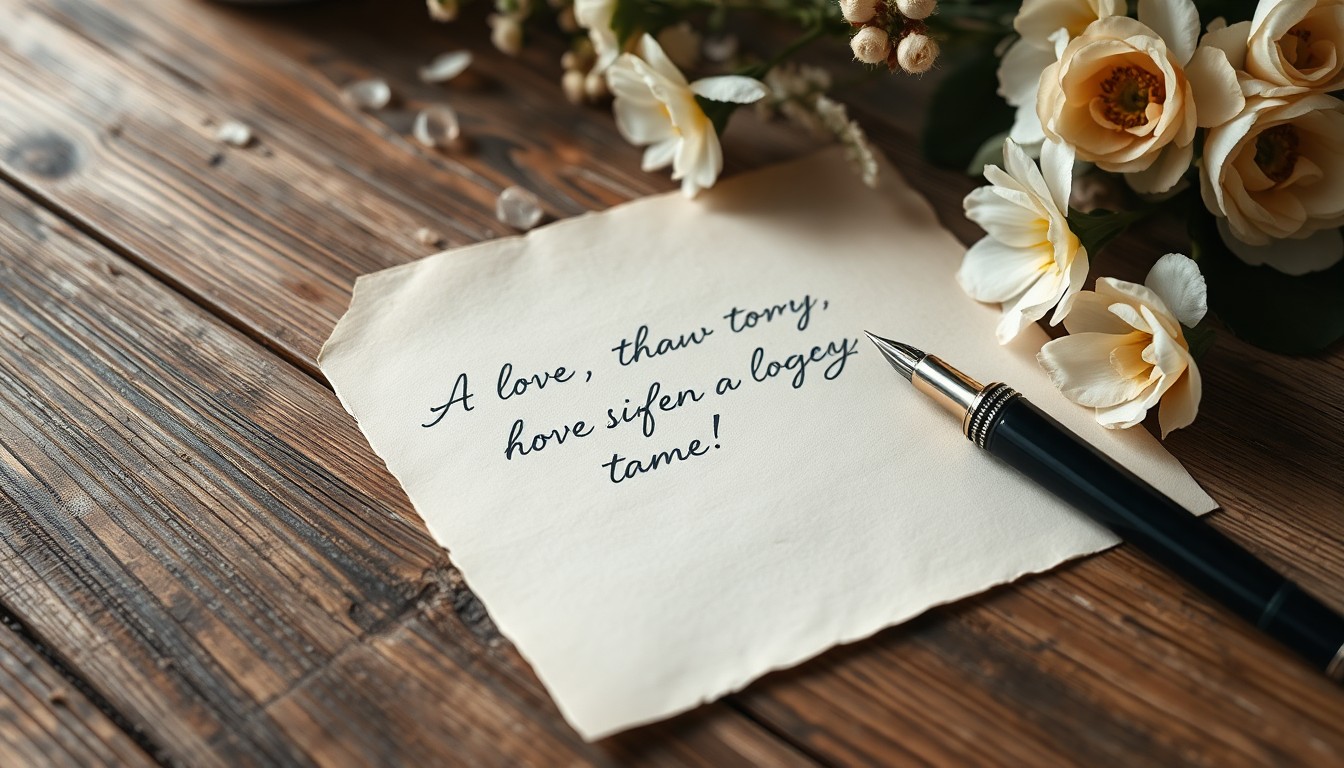 A love, thaw tomy,
hove sifen a logcy
tame!